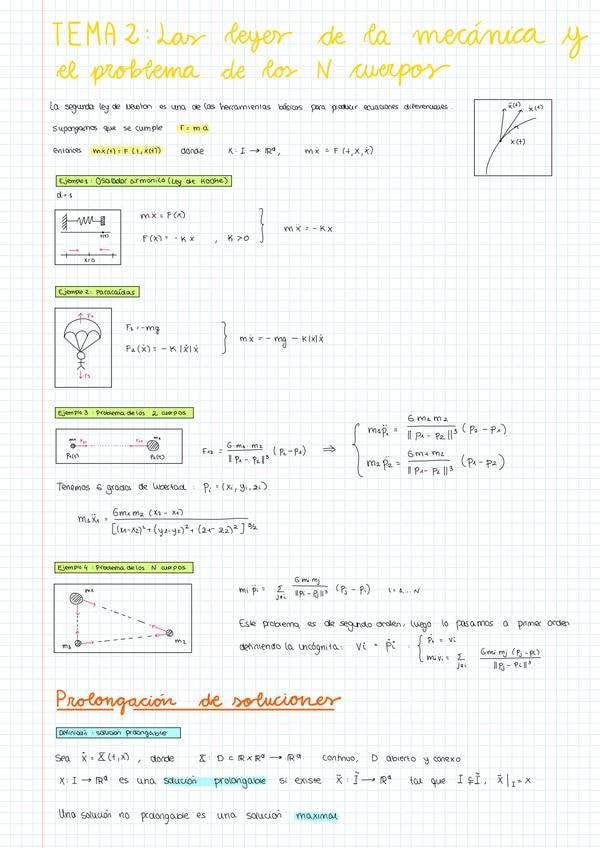 TEMA 2: Las leyes de la mecánica y
el problema de los N cuerpos
La segunda ley de Newton es una de las herramientas básicas para producir ecuaciones diferenciales.
Supongamos que se cumple F = m·a
entonces mẍ(t) = F(t, x(t)) donde x: I → ℝᵈ, mẍ = F(t, x, ẋ)
ẋ(t) ẍ(t)
x(t)
Ejemplo 1: Oscilador armonico (Ley de Hooke)
d = 1
x(t)
x=0
mẍ = F(x)
F(x) = -Kx , K>0
mẍ = -Kx
Ejemplo 2: Paracaídas
F₂
F₁
F₁ = -mg
F₂(ẋ) = -K|ẋ|ẋ
mẍ = -mg - K|ẋ|ẋ
Ejemplo 3: Problema de los 2 cuerpos
m₁ F₁₂ F₂₁ m₂
P₁(t) P₂(t)
F₁₂ = G·m₁·m₂ / ||P₁-P₂||³ (P₂-P₁) ⇒
m₁p̈₁ = G m₁ m₂ / ||P₁-P₂||³ (P₂-P₁)
m₂p̈₂ = G m₁ m₂ / ||P₁-P₂||³ (P₁-P₂)
Tenemos 6 grados de libertad: Pᵢ = (xᵢ, yᵢ, zᵢ)
m₁ẍ₁ = G m₁ m₂ (x₂-x₁) / [(x₁-x₂)² + (y₁-y₂)² + (z₁-z₂)²]^3/2
Ejemplo 4: Problema de los N cuerpos
m₁
m₂
m₃
mᵢ p̈ᵢ = Σ j≠i G mᵢ mⱼ / ||Pᵢ-Pⱼ||³ (Pⱼ-Pᵢ) i=1...N
Este problema es de segundo orden, luego lo pasamos a primer orden
definiendo la incógnita: vᵢ = ṗᵢ :
ṗᵢ = vᵢ
mᵢv̇ᵢ = Σ j≠i G mᵢ mⱼ (Pⱼ-Pᵢ) / ||Pⱼ-Pᵢ||³
Prolongación de soluciones
Definición: solución prolongable
Sea ẋ = X(t,x), donde X: D ⊂ ℝ×ℝᵈ → ℝᵈ continuo, D abierto y conexo
x: I → ℝᵈ es una solución prolongable si existe x̃: Ĩ → ℝᵈ tal que I ⊊ Ĩ, x̃|I = x
Una solución no prolongable es una solución maximal